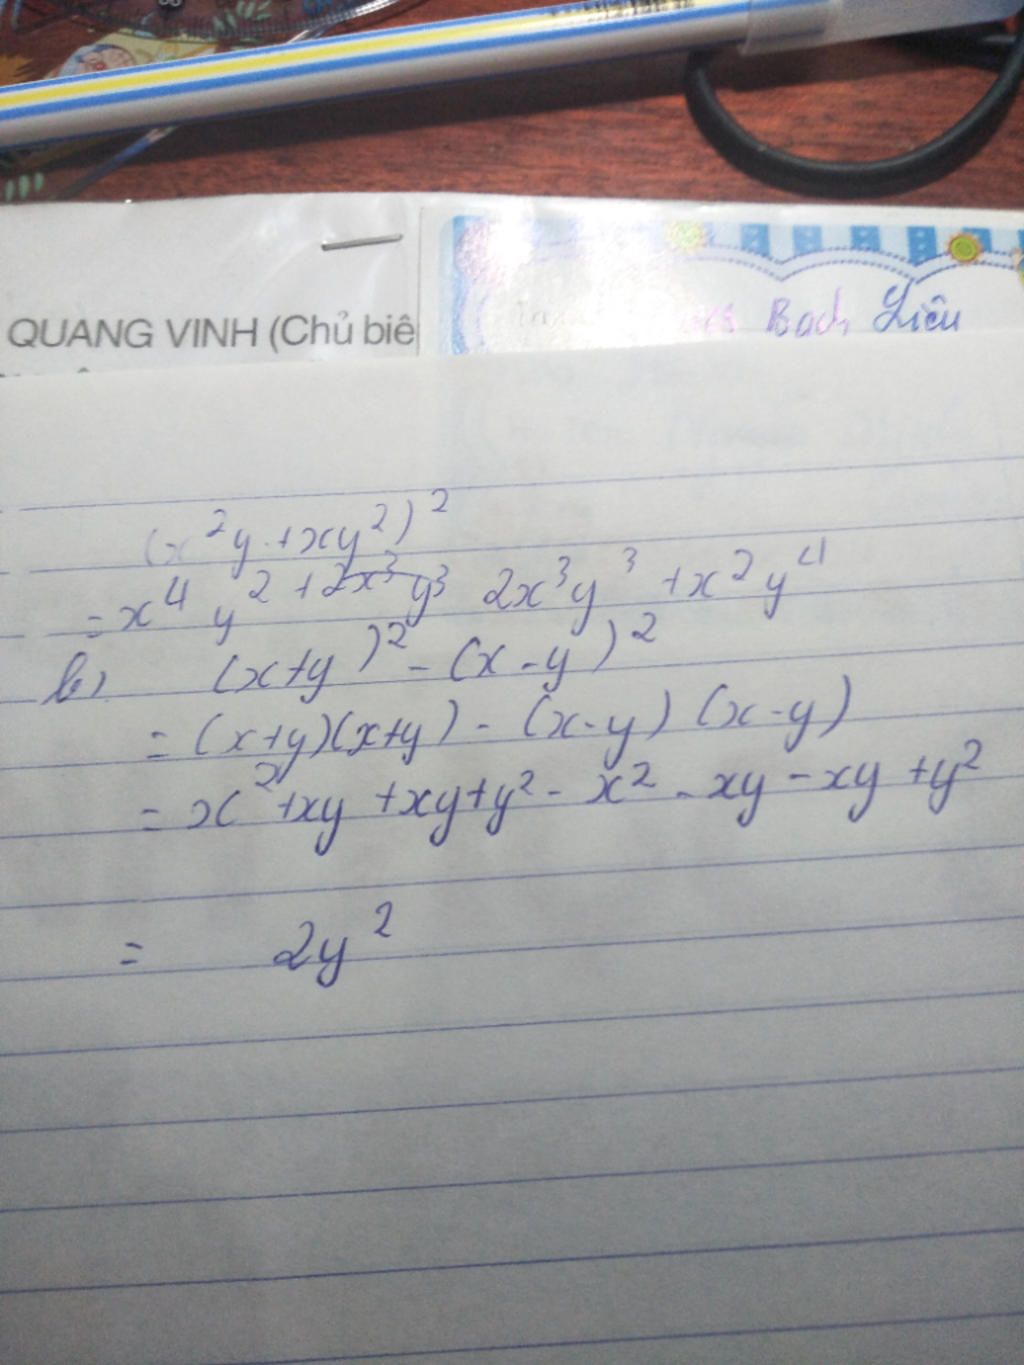 QUANG VINH (Chủ biê
Bạch Liêu
(x²y + xy²)²
= x⁴ y² + 2x³ y³ 2x³y³ + x²y⁴
b) (x+y)² - (x-y)²
= (x+y)(x+y) - (x-y)(x-y)
= x² + xy + xy + y² - x² - xy - xy + y²
= 2y²